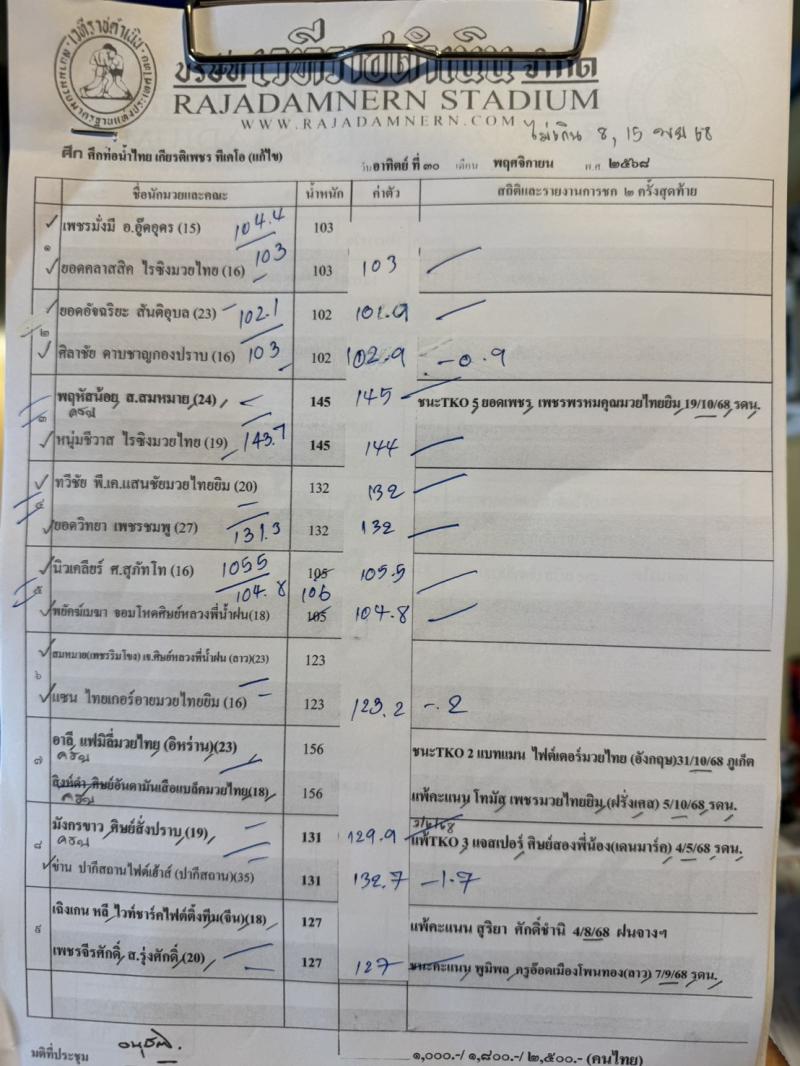 บริษัท เวทีราชดำเนิน จำกัด
RAJADAMNERN STADIUM
WWW.RAJADAMNERN.COM
ไม่เกิน 8, 15 68
ศึก ศึกท่อน้ำไทย เกียรติเพชร ทีเคโอ (แก้ไข) วันอาทิตย์ ที่ ๓๐ เดือน พฤศจิกายน พ.ศ. ๒๕๖๘
ชื่อนักมวยและคณะ น้ำหนัก ค่าตัว สถิติและรายงานการชก ๒ ครั้งสุดท้าย
เพชรมั่งมี อ.อู๊ดอุดร (15) 104.4 103
๑
ยอดคลาสสิค ไรซิงมวยไทย (16) 103 103 103
ยอดอัจฉริยะ สันติอุบล (23) 102.1 102 101.9
๒
ศิลาชัย ดาบชาญกองปราบ (16) 103 102 102.9 -0.9
พฤหัสน้อย ส.สมหมาย (24) 145 145 ชนะTKO 5 ยอดเพชร เพชรพรหมคุณมวยไทยยิม 19/10/68 รดน.
๓ ครบ
หนุ่มชีวาส ไรซิงมวยไทย (19) 143.7 145 144
ทวีชัย พี.เค.แสนชัยมวยไทยยิม (20) 132 132
๔
ยอดวิทยา เพชรชมพู (27) 131.3 132 132
นิวเคลียร์ ศ.สุภัทโท (16) 105.5 105 105.5
๕ 104.8 106
พยัคฆ์เมฆา จอมโหดศิษย์หลวงพี่น้ำฝน(18) 105 104.8
สมหมาย(เพชรริมโขง) เจ.ศิษย์หลวงพี่น้ำฝน (ลาว)(23) 123
๖
แซน ไทยเกอร์อายมวยไทยยิม (16) 123 123.2 -.2
อาลี แฟมิลี่มวยไทย (อิหร่าน)(23) 156 ชนะTKO 2 แบทแมน ไฟต์เตอร์มวยไทย (อังกฤษ)31/10/68 ภูเก็ต
๗ ครบ
สิงห์ดำ ศิษย์อันดามันเสือแบล็คมวยไทย(18) 156 แพ้คะแนน โทมัส เพชรมวยไทยยิม (ฝรั่งเศส) 5/10/68 รดน.
ครบ
มังกรขาว ศิษย์สั่งปราบ (19) 131 129.9 แพ้TKO 3 แจสเปอร์ ศิษย์สองพี่น้อง(เดนมาร์ค) 4/5/68 รดน.
๘ ครบ
ข่าน ปากีสถานไฟต์เฮ้าส์ (ปากีสถาน)(35) 131 132.7 -1.7
เฉิงเกน หลี ไวท์ชาร์คไฟต์ติ้งทีม(จีน)(18) 127 แพ้คะแนน สุริยา ศักดิ์ชำนิ 4/8/68 ฝนจางฯ
๙
เพชรจีรศักดิ์ ส.รุ่งศักดิ์ (20) 127 127 ชนะคะแนน ภูมิพล ครูอ๊อดเมืองโพนทอง(ลาว) 7/9/68 รดน.
มติที่ประชุม ๑,๐๐๐.-/ ๑,๘๐๐.-/ ๒,๕๐๐.- (คนไทย)